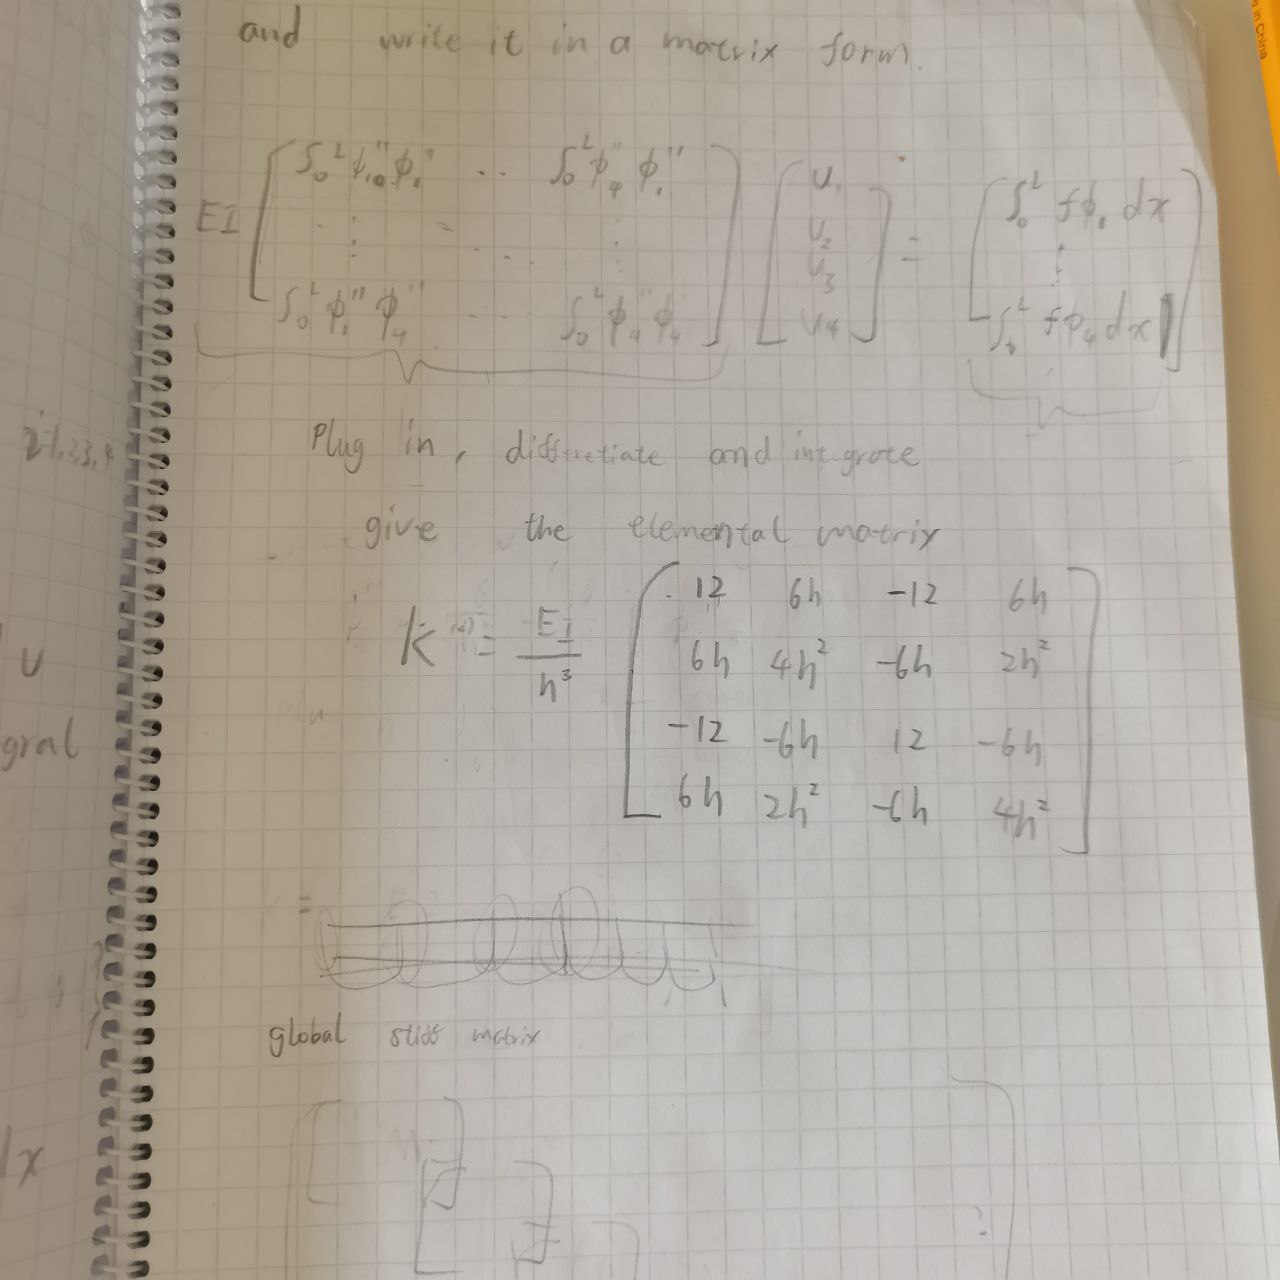 and write it in a matrix form.
EI [ ∫₀ᴸ φ₁''φ₁'' ... ∫₀ᴸ φ₄'' φ₁'' ] [ U₁ ] = [ ∫₀ᴸ fφ₁ dx ]
U₂
U₃
∫₀ᴸ φ₁''φ₄'' ... ∫₀ᴸ φ₄''φ₄ U₄ ∫₀ᴸ fφ₄ dx
i=1,2,3,4
Plug in, diffretiate and integrate
give the elemental matrix
K = EI/h³
12 6h -12 6h
6h 4h² -6h 2h²
-12 -6h 12 -6h
6h 2h² -6h 4h²
U
gral
=
global stiff matrix
dx
in China